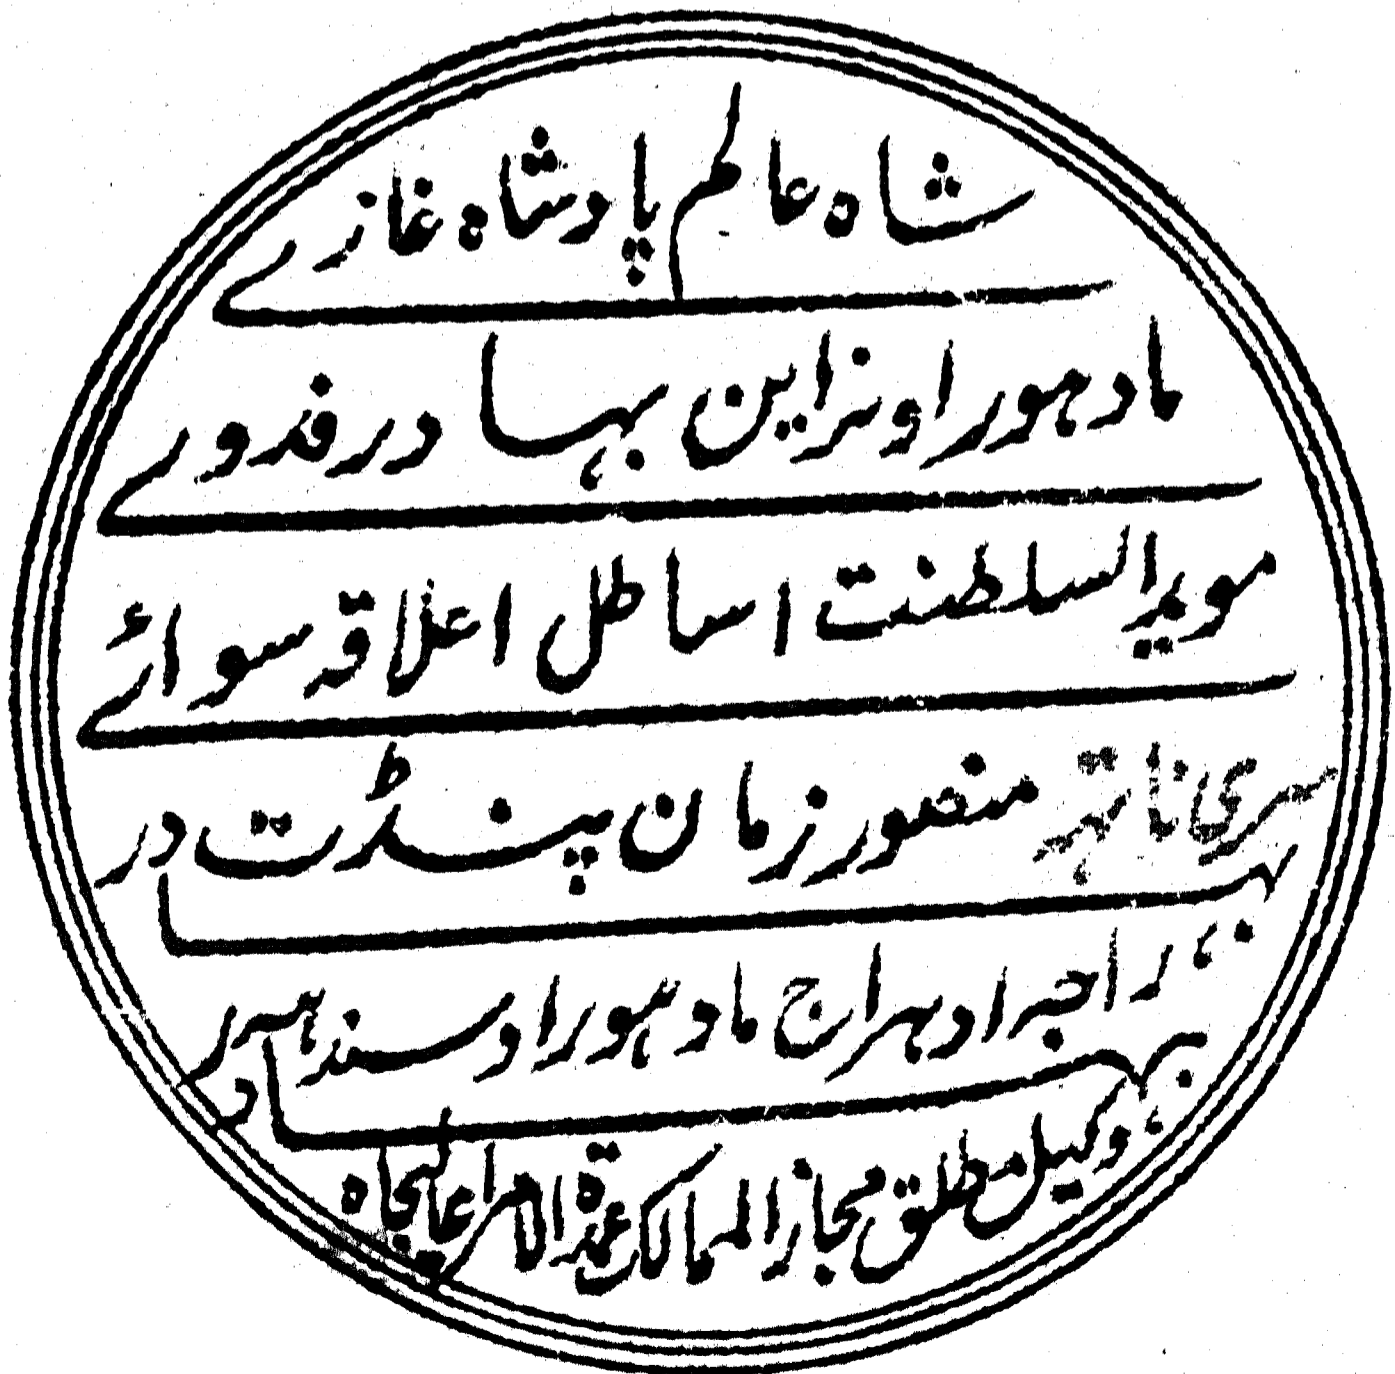 شاه عالم پادشاه غازے
مادہوراونراین بہادر فدوے
مویدالسلطنت اساطل اعلاقہ سوائے
سری ناتہہ منصور زمان پنڈت در
بہا راجہ ادہراج مادہوراو سندہیہ
بہادر
وکیل مطلق مجاز الممالک عمدة الامرا عالیجاه